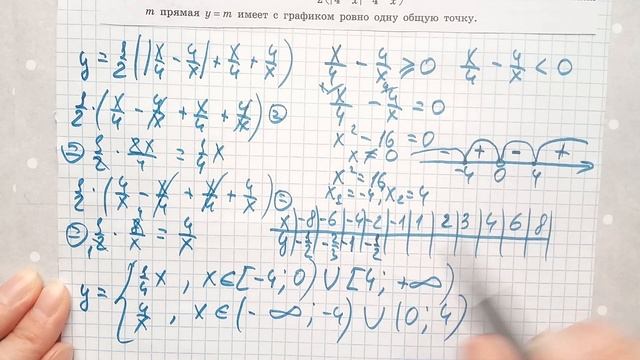 m прямая y = m имеет с графиком ровно одну общую точку.
y = 1/2 (|x/4 - 4/x| + x/4 + 4/x)
x/4 - 4/x ⩾ 0   x/4 - 4/x < 0
1/2 · (x/4 - 4/x + x/4 + 4/x) =
x/4 - 4/x = 0
x² - 16 = 0
x ≠ 0
= 1/2 · 2x/4 = 1/4 x
- + - +
-4 0 4
x² = 16
x₁ = -4, x₂ = 4
1/2 · (4/x - x/4 + x/4 + 4/x) =
= 1/2 · 8/x = 4/x
x | -8 | -6 | -4 | -2 | -1 | 1 | 2 | 3 | 4 | 6 | 8
y | -1/2 | -2/3 | -1 | -1/2
y = { 1/4 x , x ∈ [-4; 0) ∪ [4; +∞)
4/x , x ∈ (-∞; -4) ∪ (0; 4)